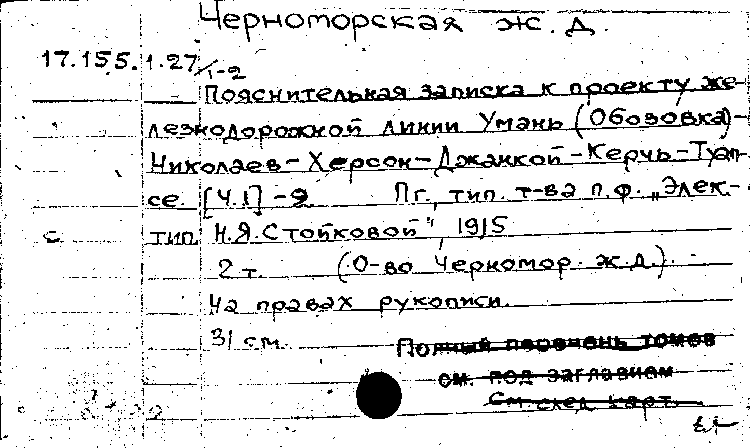 Черноморская ж. д.
17.155.1.27/1-2
Пояснительная записка к проекту же-
лезнодорожной линии Умань (Обозовка)-
Николаев-Херсон-Джанкой-Керчь-Туап-
се. [Ч.1]-2 Пг., тип. т-ва п.ф. „Элек-
тип. Н.Я.Стойковой", 1915
2 т. (О-во Черномор. ж.д.).
На правах рукописи.
31 см.
Полный перечень томов
см. под заглавием
См. след. карт.